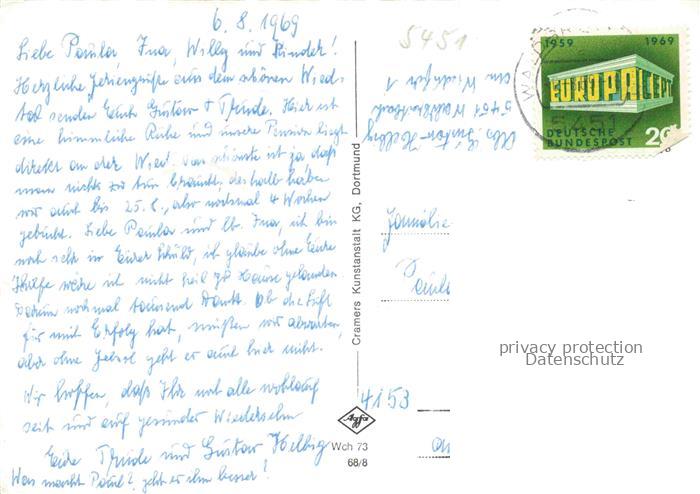 6.8.1969
Liebe Paula Ina, Willy und Kinder!
Herzliche Feriengrüße aus dem schönen Wied-
tal senden Euch Gustav + Trude. Hier ist
eine himmliche Ruhe und unsere Pension liegt
direkt an der Wied. Das schönste ist ja daß
man nichts zu tun braucht, deshalb haben
wir auch bis 25.8., also nochmal 4 Wochen
gebucht. Liebe Paula und lb. Ina, ich bin
noch sehr in Eurer Schuld, ich glaube ohne Eure
Hilfe wäre ich nicht heil zu Hause gelandet.
Darum nochmal tausend Dank. Ob die Luft
für mich Erfolg hat, müssen wir abwarten,
aber ohne geht es auch hier nicht.
Wir hoffen, daß Ihr noch alle wohlauf
seit und auf gesundes Wiedersehn
Eure Trude und Gustav Helbig
Was macht Paul? geht es ihm besser!
Cramers Kunstanstalt KG, Dortmund
Agfa
Wch 73
68/8
5451
Abs. Gustav Helbig
5451
1
1959 1969
EUROPA CEPT
DEUTSCHE
BUNDESPOST
20
5451
Familie
Paula
4153
privacy protection
Datenschutz